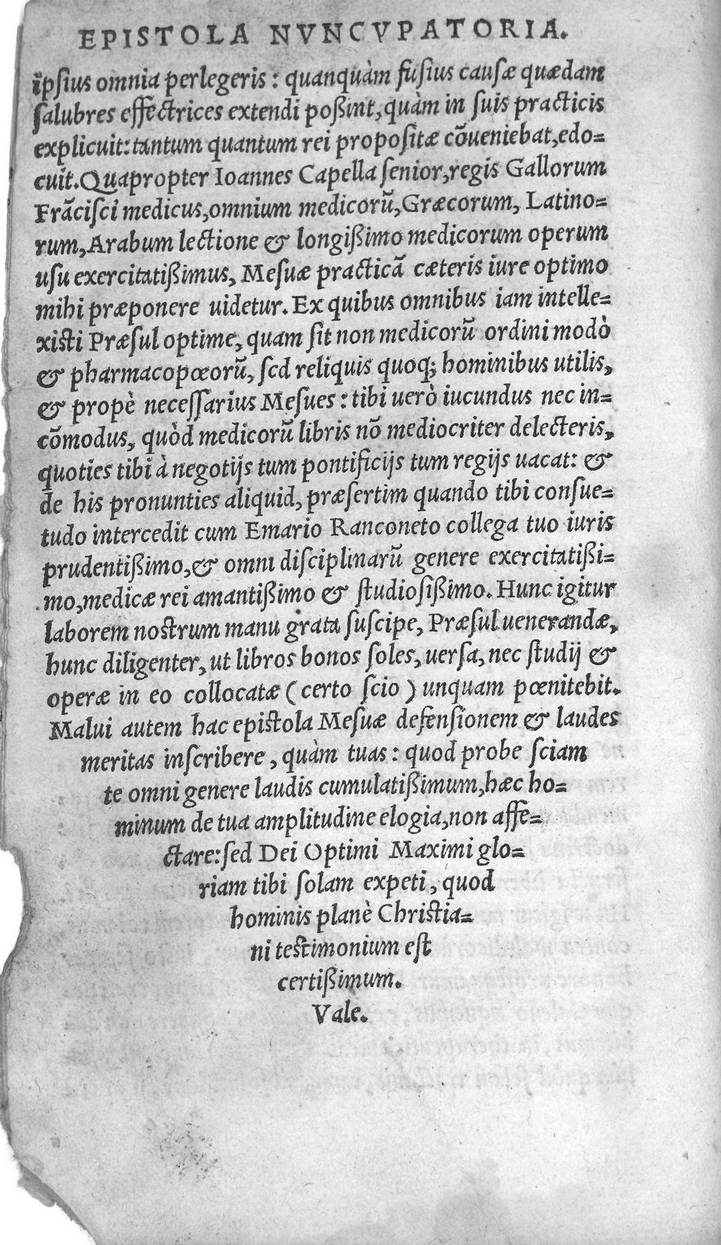 EPISTOLA NVNCVPATORIA.
ipsius omnia perlegeris: quanquàm fusius causæ quædam
salubres effectrices extendi poßint, quàm in suis practicis
explicuit: tantum quantum rei propositæ cõueniebat, edo=
cuit. Quapropter Ioannes Capella senior, regis Gallorum
Frãcisci medicus, omnium medicorũ, Græcorum, Latino=
rum, Arabum lectione & longißimo medicorum operum
usu exercitatißimus, Mesuæ practicã cæteris iure optimo
mihi præponere uidetur. Ex quibus omnibus iam intelle=
xisti Præsul optime, quam sit non medicorũ ordini modò
& pharmacopœorũ, sed reliquis quoq; hominibus utilis,
& propè necessarius Mesues: tibi uerò iucundus nec in=
cõmodus, quòd medicorũ libris nõ mediocriter delecteris,
quoties tibi à negotijs tum pontificijs tum regijs uacat: &
de his pronunties aliquid, præsertim quando tibi consue=
tudo intercedit cum Emario Ranconeto collega tuo iuris
prudentißimo, & omni disciplinarũ genere exercitatißi=
mo, medicæ rei amantißimo & studiosißimo. Hunc igitur
laborem nostrum manu grata suscipe, Præsul uenerandæ,
hunc diligenter, ut libros bonos soles, uersa, nec studij &
operæ in eo collocatæ (certo scio) unquam pœnitebit.
Malui autem hac epistola Mesuæ defensionem & laudes
meritas inscribere, quàm tuas: quod probe sciam
te omni genere laudis cumulatißimum, hæc ho=
minum de tua amplitudine elogia, non affe=
ctare: sed Dei Optimi Maximi glo=
riam tibi solam expeti, quod
hominis planè Christia=
ni testimonium est
certißimum.
Vale.